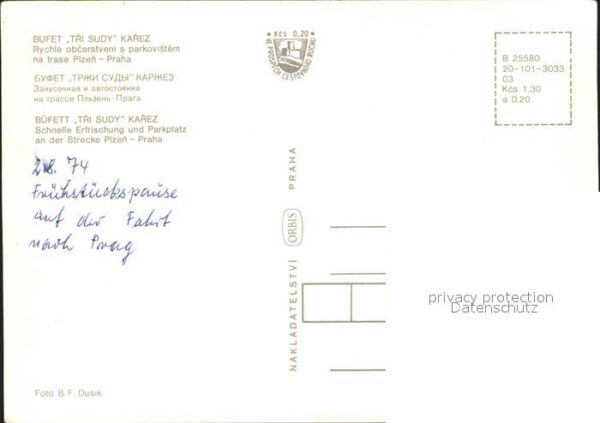 BUFET „TŘI SUDY" KAŘEZ
Rychlé občerstvení s parkovištěm
na trase Plzeň – Praha
БУФЕТ „ТРЖИ СУДЫ" КАРЖЕЗ
Закусочная и автостоянка
на трассе Пльзень - Прага
BÜFETT „TŘI SUDY" KAŘEZ
Schnelle Erfrischung und Parkplatz
an der Strecke Plzeň – Praha
74
Frühstückspause
auf der Fahrt
nach Prag
Foto B. F. Dusík
* Kčs 0,20 *
VE PROSPĚCH CESTOVNÍHO RUCHU
NAKLADATELSTVÍ ORBIS PRAHA
B 25580
20-101-3033
03
Kčs 1,30
a 0,20
privacy protection
Datenschutz